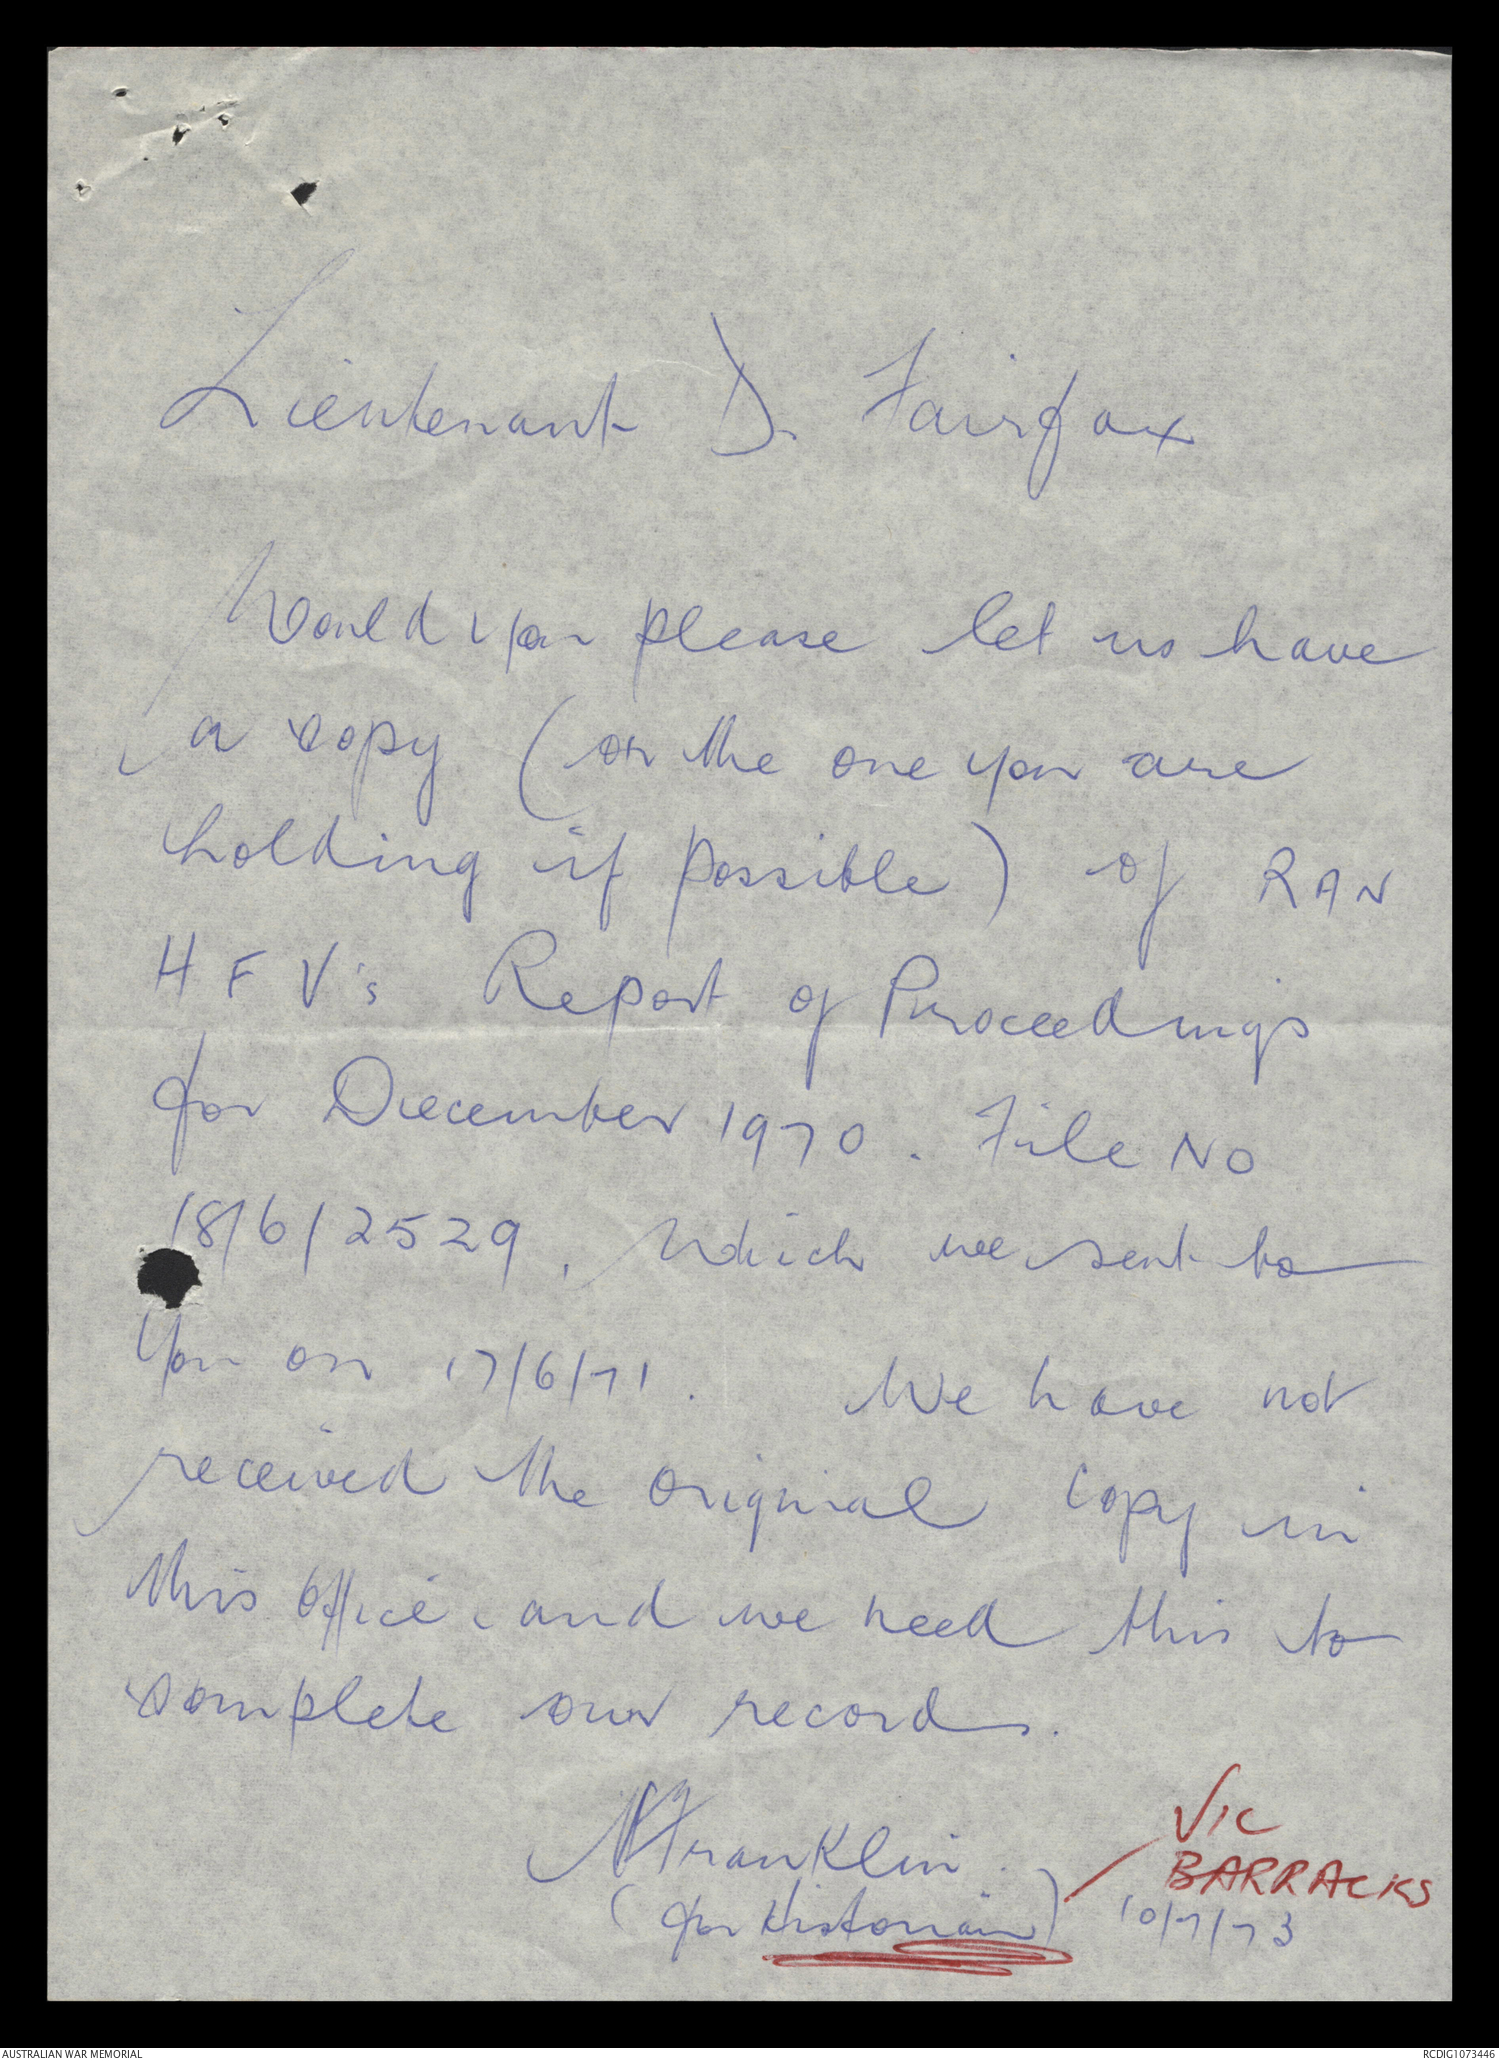 Lieutenant D. Fairfax
Would you please let us have
a copy (or the one you are
holding if possible) of RAN
HFV's Report of Proceedings
for December 1970. File No
18/6/2529, which we sent to
you on 17/6/71. We have not
received the original copy in
this office, and we need this to
complete our records.
Franklin
VIC
BARRACKS
(for Historian) 10/7/73
AUSTRALIAN WAR MEMORIAL RCDIG1073446